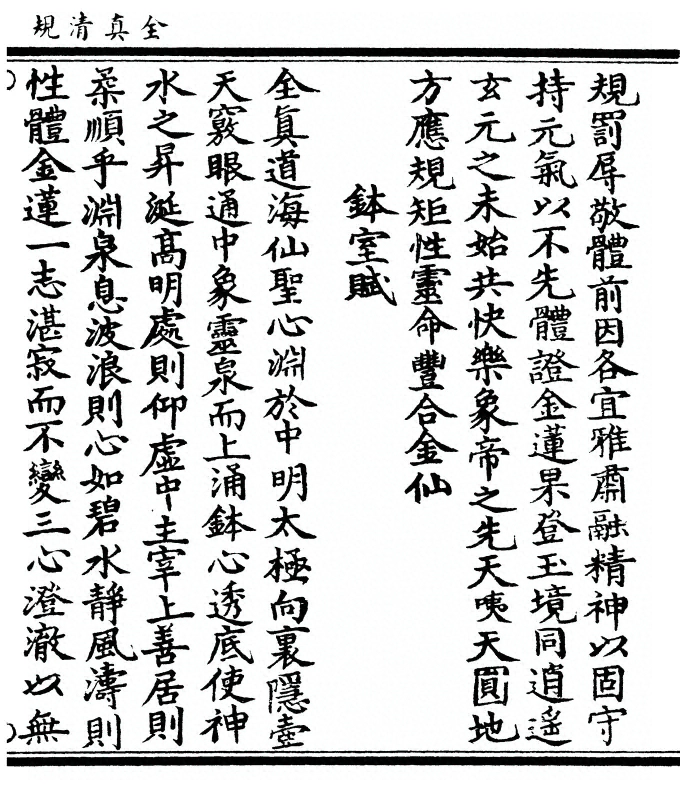 全真清規
規罰辱敬體前因各宜雅肅融精神以固守
持元氣以不先體證金蓮果登玉境同逍遙
玄元之未始共快樂象帝之先天咦天圓地
方應規矩性靈命豐合金仙
鉢室賦
全真道海仙聖心淵於中明太極向裏隱壺
天竅眼通中象靈泉而上涌鉢心透底使神
水之昇涎高明處則仰虛中主宰上善居則
柔順乎淵泉息波浪則心如碧水靜風濤則
性體金蓮一志湛寂而不變三心澄澈以無